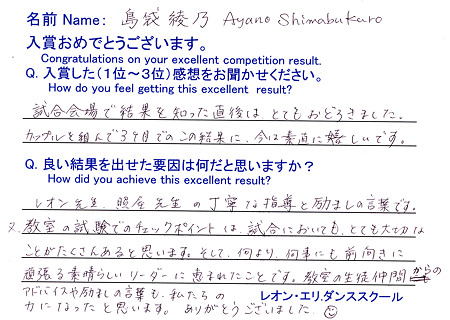 名前 Name: 島袋 綾乃 Ayano Shimabukuro
入賞おめでとうございます。
Congratulations on your excellent competition result.
Q. 入賞した(1位~3位)感想をお聞かせください。
How do you feel getting this excellent result?
試合会場で結果を知った直後は、とてもおどろきました。
カップルを組んで3ヶ月でのこの結果に、今は素直に嬉しいです。
Q. 良い結果を出せた要因は何だと思いますか?
How did you achieve this excellent result?
レオン先生、照屋先生の丁寧な指導と励ましの言葉です。
又、教室の試験でのチェックポイントは、試合においても、とても大切な
ことがたくさんあると思います。そして、何より、何事にも前向きに
頑張る素晴らしいリーダーに恵まれたことです。教室の生徒仲間からの
アドバイスや励ましの言葉も、私たちの
力になったと思います。ありがとうございました。
レオン・エリ.ダンススクール